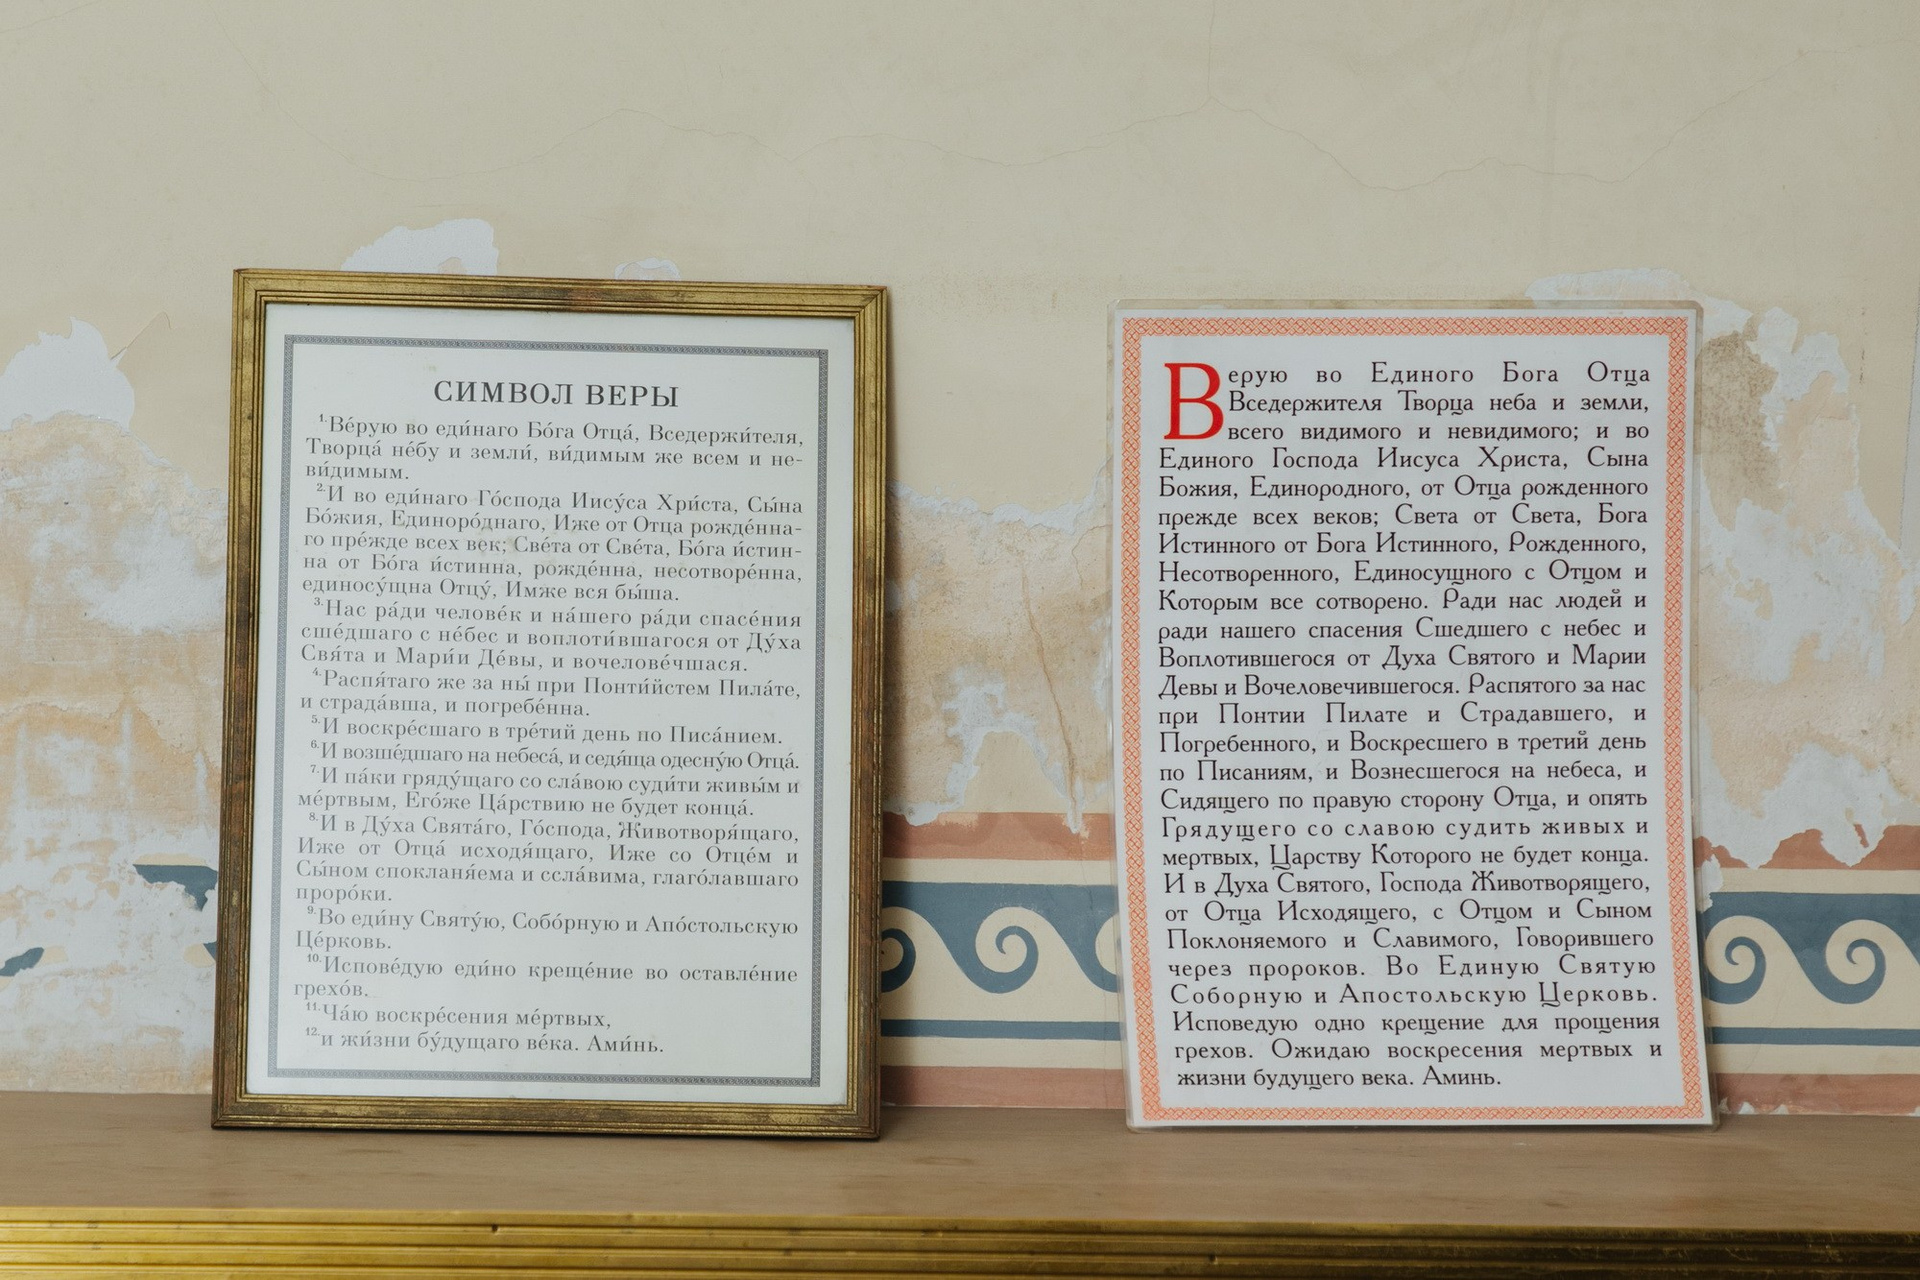 СИМВОЛ ВЕРЫ
1.Ве́рую во еди́наго Бо́га Отца́, Вседержи́теля,
Творца́ не́бу и земли́, ви́димым же всем и не-
ви́димым.
2.И во еди́наго Го́спода Иису́са Хри́ста, Сы́на
Бо́жия, Единоро́днаго, Иже от Отца рожде́нна-
го пре́жде всех век; Све́та от Све́та, Бо́га и́стин-
на от Бо́га и́стинна, рожде́нна, несотворе́нна,
единосу́щна Отцу́, Имже вся бы́ша.
3.Нас ра́ди челове́к и на́шего ра́ди спасе́ния
сше́дшаго с не́бес и воплоти́вшагося от Ду́ха
Свя́та и Мари́и Де́вы, и вочелове́чшася.
4.Распя́таго же за ны́ при Понти́йстем Пила́те,
и страда́вша, и погребе́нна.
5.И воскре́сшаго в тре́тий день по Писа́нием.
6.И возше́дшаго на небеса́, и седя́ща одесну́ю Отца́.
7.И па́ки гряду́щаго со сла́вою суди́ти живы́м и
ме́ртвым, Его́же Ца́рствию не бу́дет конца́.
8.И в Ду́ха Свята́го, Го́спода, Животворя́щаго,
Иже от Отца́ исходя́щаго, Иже со Отце́м и
Сы́ном спокланя́ема и ссла́вима, глаго́лавшаго
проро́ки.
9.Во еди́ну Святу́ю, Собо́рную и Апо́стольскую
Це́рковь.
10.Испове́дую еди́но креще́ние во оставле́ние
грехо́в.
11.Ча́ю воскре́сения ме́ртвых,
12.и жи́зни бу́дущаго ве́ка. Ами́нь.
Верую во Единого Бога Отца
Вседержителя Творца неба и земли,
всего видимого и невидимого; и во
Единого Господа Иисуса Христа, Сына
Божия, Единородного, от Отца рожденного
прежде всех веков; Света от Света, Бога
Истинного от Бога Истинного, Рожденного,
Несотворенного, Единосущного с Отцом и
Которым все сотворено. Ради нас людей и
ради нашего спасения Сшедшего с небес и
Воплотившегося от Духа Святого и Марии
Девы и Вочеловечившегося. Распятого за нас
при Понтии Пилате и Страдавшего, и
Погребенного, и Воскресшего в третий день
по Писаниям, и Вознесшегося на небеса, и
Сидящего по правую сторону Отца, и опять
Грядущего со славою судить живых и
мертвых, Царству Которого не будет конца.
И в Духа Святого, Господа Животворящего,
от Отца Исходящего, с Отцом и Сыном
Поклоняемого и Славимого, Говорившего
через пророков. Во Единую Святую
Соборную и Апостольскую Церковь.
Исповедую одно крещение для прощения
грехов. Ожидаю воскресения мертвых и
жизни будущего века. Аминь.